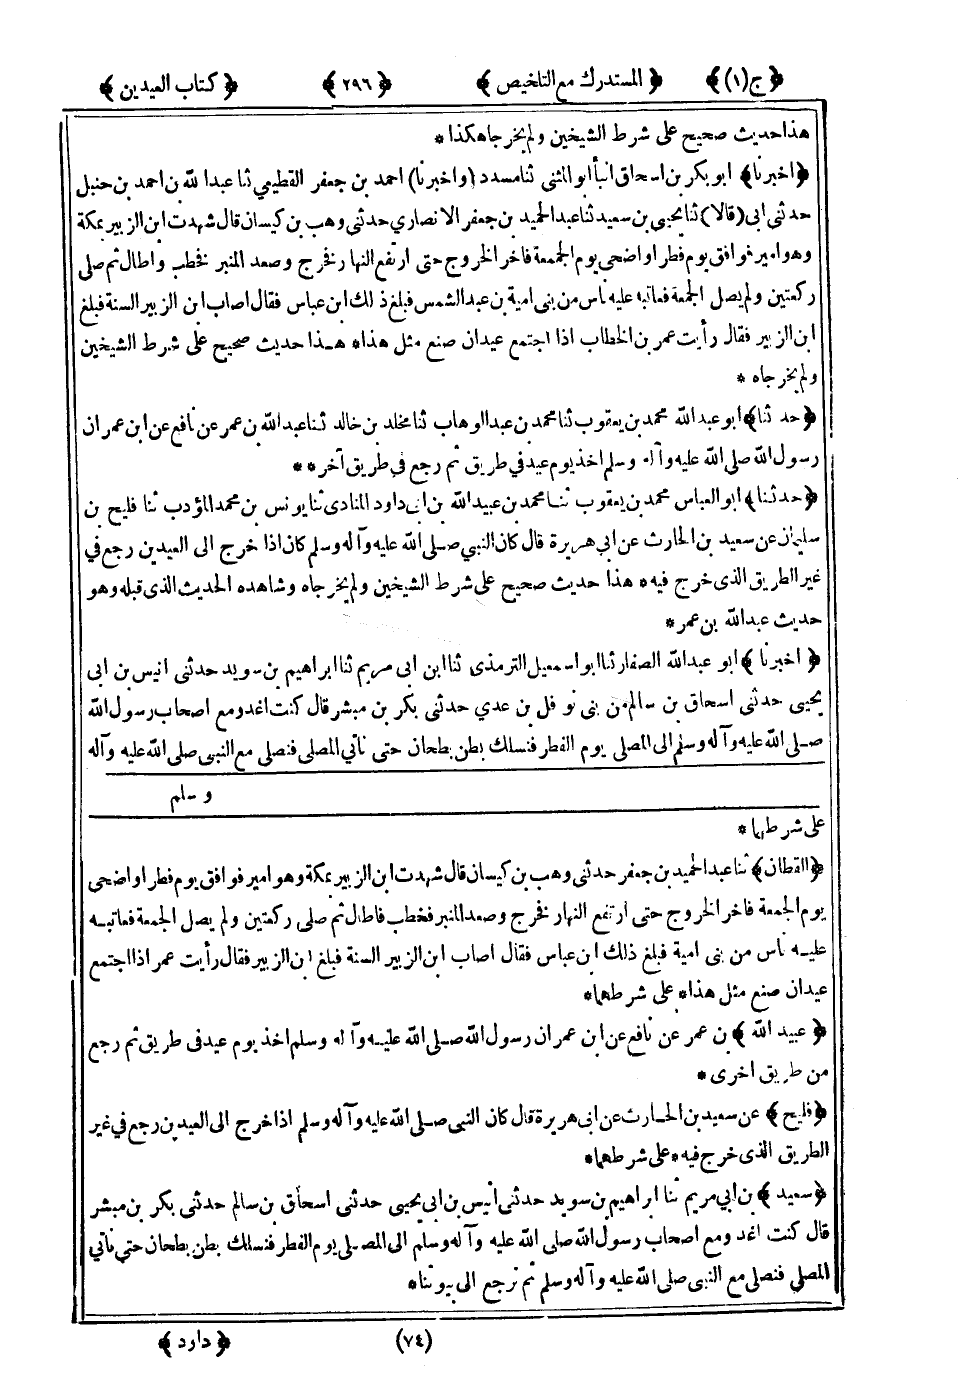 ﴿ ج (١) ﴾ ﴿ المستدرك مع التلخيص ﴾ ﴿ ٢٩٦ ﴾ ﴿ كتاب العيدين ﴾
هذا حديث صحيح على شرط الشيخين ولم يخرجاه هكذا *
﴿ اخبرنا ﴾ ابو بكر بن اسحاق انبأ ابو المثنى ثنا مسدد (واخبرنا) احمد بن جعفر القطيعي ثنا عبد الله بن احمد بن حنبل
حدثنى ابى (قالا) ثنا يحيى بن سعيد ثنا عبد الحميد بن جعفر الانصاري حدثنى وهب بن كيسان قال شهدت ابن الزبير بمكة
وهو امير فوافق يوم فطر او اضحى يوم الجمعة فاخر الخروج حتى ارتفع النهار فخرج وصعد المنبر فخطب واطال ثم صلى
ركعتين ولم يصل الجمعة فعاتبه عليه ناس من بنى امية بن عبد الشمس فبلغ ذلك ابن عباس فقال اصاب ابن الزبير السنة فبلغ
ابن الزبير فقال رأيت عمر بن الخطاب اذا اجتمع عيدان صنع مثل هذا * هذا حديث صحيح على شرط الشيخين
ولم يخرجاه *
﴿ حدثنا ﴾ ابو عبد الله محمد بن يعقوب ثنا محمد بن عبد الوهاب ثنا مخلد بن خالد ثنا عبد الله بن عمر عن نافع عن ابن عمر ان
رسول الله صلى الله عليه وآله وسلم اخذ يوم عيد في طريق ثم رجع في طريق آخر * *
﴿ حدثنا ﴾ ابو العباس محمد بن يعقوب ثنا محمد بن عبيد الله بن ابى داود المنادى ثنا يونس بن محمد المؤدب ثنا فليح بن
سليمان عن سعيد بن الحارث عن ابي هريرة قال كان النبي صلى الله عليه وآله وسلم كان اذا خرج الى العيدين رجع في
غير الطريق الذى خرج فيه * هذا حديث صحيح على شرط الشيخين ولم يخرجاه وشاهده الحديث الذى قبله وهو
حديث عبد الله بن عمر *
﴿ اخبرنا ﴾ ابو عبد الله الصفار ثنا ابو اسمعيل الترمذى ثنا ابن ابى مريم ثنا ابراهيم بن سويد حدثنى انيس بن ابى
يحيى حدثنى اسحاق بن سالم من بنى نوفل بن عدي حدثنى بكر بن مبشر قال كنت اغدو مع اصحاب رسول الله
صلى الله عليه وآله وسلم الى المصلى يوم الفطر فنسلك بطن بطحان حتى نأتي المصلى فنصلى مع النبى صلى الله عليه وآله
وسلم
على شرطهما *
﴿ القطان ﴾ ثنا عبد الحميد بن جعفر حدثنى وهب بن كيسان قال شهدت ابن الزبير بمكة وهو امير فوافق يوم فطر او اضحى
يوم الجمعة فاخر الخروج حتى ارتفع النهار فخرج وصعد المنبر فخطب فاطال ثم صلى ركعتين ولم يصل الجمعة فعاتبه
عليه ناس من بنى امية فبلغ ذلك ابن عباس فقال اصاب ابن الزبير السنة فبلغ ابن الزبير فقال رأيت عمر اذا اجتمع
عيدان صنع مثل هذا * على شرطهما *
﴿ عبيد الله ﴾ بن عمر عن نافع عن ابن عمر ان رسول الله صلى الله عليه وآله وسلم اخذ يوم عيد فى طريق ثم رجع
من طريق اخرى *
﴿ فليح ﴾ عن سعيد بن الحارث عن ابى هريرة قال كان النبى صلى الله عليه وآله وسلم اذا خرج الى العيدين رجع في غير
الطريق الذى خرج فيه * على شرطهما *
﴿ سعيد ﴾ بن ابي مريم ثنا ابراهيم بن سويد حدثنى أنيس بن ابى يحيى حدثنى اسحاق بن سالم حدثنى بكر بن مبشر
قال كنت اغدو مع اصحاب رسول الله صلى الله عليه وآله وسلم الى المصلى يوم الفطر فنسلك بطن بطحان حتى نأتي
المصلى فنصلى مع النبي صلى الله عليه وآله وسلم ثم نرجع الى بيوتنا *
(٧٤) ﴿ دارد ﴾